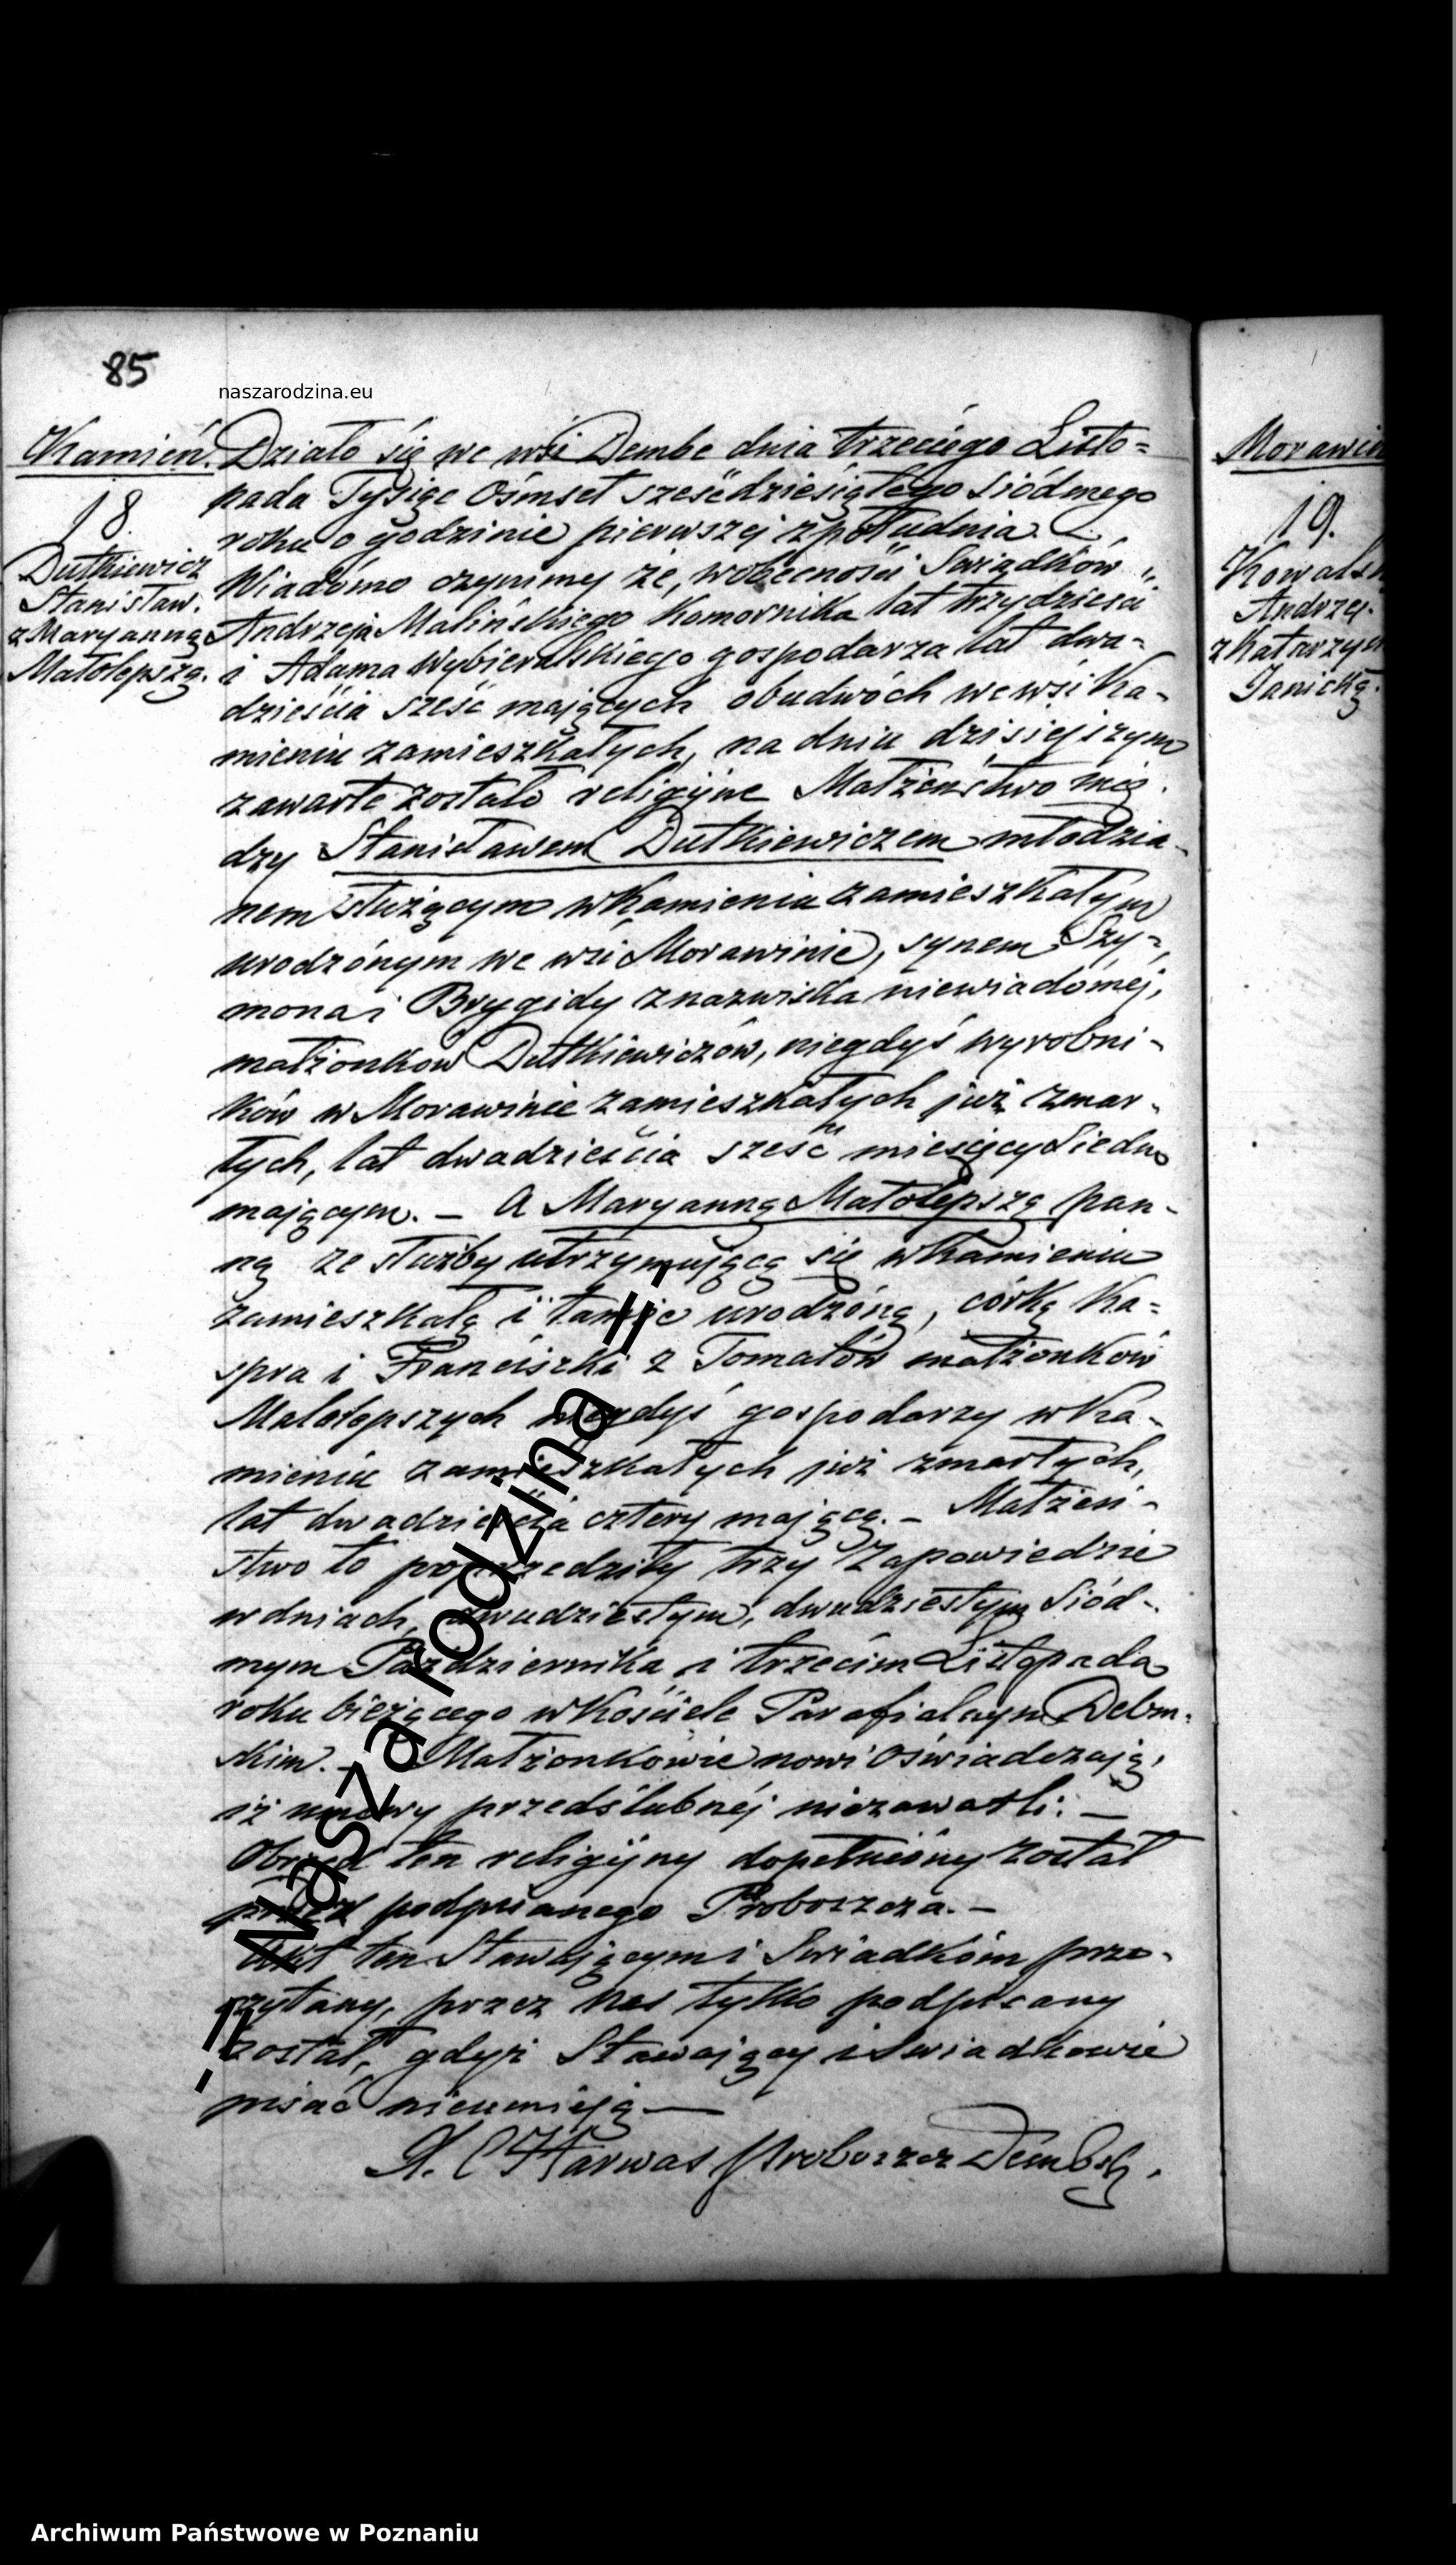 85
naszarodzina.eu
Kamień.
18.
Dutkiewicz
Stanisław.
z Maryanną
Małolepszą.
Działo się we wsi Dembe dnia trzeciego Listo=
pada Tysiąc Ośmset sześćdziesiątego siódmego
roku o godzinie pierwszej z południa.
Wiadomo czynimy że, w obecności Swiadków
Andrzeja Malińskiego Komornika lat trzydzieści
i Adama Wybieralskiego gospodarza lat dwa-
dzieścia sześć mających obudwóch we wsi Ka-
mieniu zamieszkałych, na dniu dzisiejszym
zawarte zostało religijne Małżeństwo mię.
dzy Stanisławem Dutkiewiczem młodzia-
nem służącym w Kamieniu zamieszkałym
urodzónym we wsi Morawinie, synem Szy=
mona i Brygidy z nazwiska niewiadomej,
małżonków Dutkiewiczów, niegdyś wyrobni-
ków w Morawinie zamieszkałych już zmar-
łych, lat dwadzieścia sześć miesięcy siedm
mającym. – A Maryanną Małolepszą pan-
ną ze służby utrzymującą się w Kamieniu
zamieszkałą i tamże urodzóną, córką Ka=
spra i Franciszki z Tomałów małżonków
Małolepszych niegdyś gospodarzy w Ka-
mieniu zamieszkałych już zmarłych,
lat dwadzieścia cztery mającą. – Małżeń-
stwo to poprzedziły trzy Zapowiedzie
w dniach, dwudziestym, dwudziestym Siód-
mym Października i trzecim Listopada
roku bieżącego w Kościele Parafialnym Debm-
skim. – Małżonkowie nowi Oświadczają,
iż umowy przedślubnéj niezawarli. –
Obrzęd ten religijny dopełnióny został
przez podpisanego Proboszcza. –
Akt ten Stawającym i Swiadkóm prze-
czytany, przez Nas tylko podpisany
został, gdyż Stawający i Swiadkowie
pisać nieumieją –
X. Harwas Proboszcz Dembsk.
Morawin
19.
Kowalsk
Andrzej.
z Katarzyn
Janicką.
-= Nasza rodzina =-
Archiwum Państwowe w Poznaniu